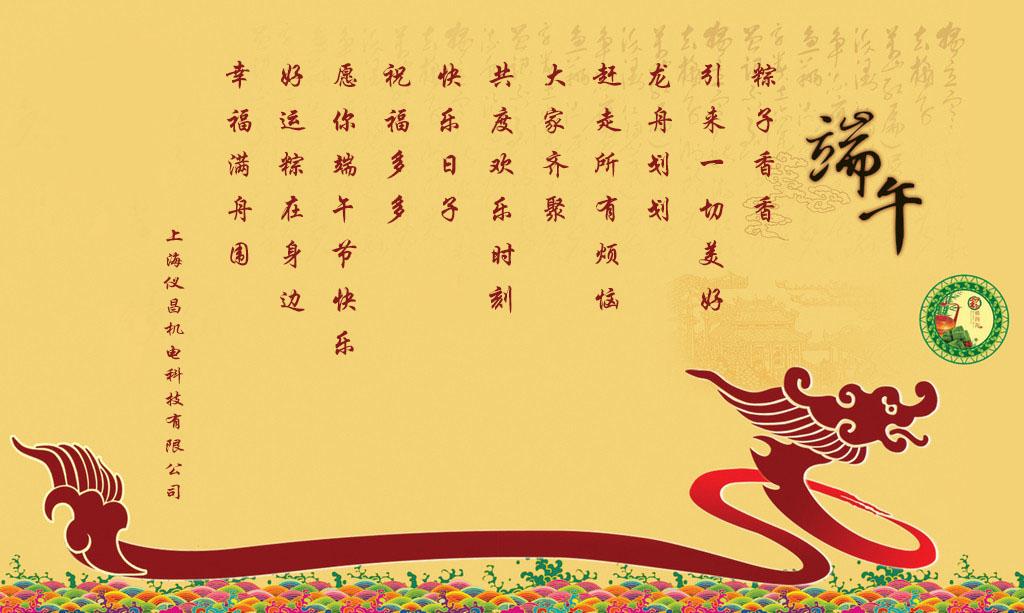 端午
粽子香香
引来一切美好
龙舟划划
赶走所有烦恼
大家齐聚
共度欢乐时刻
快乐日子
祝福多多
愿你端午节快乐
好运粽在身边
幸福满舟围
上海仪昌机电科技有限公司